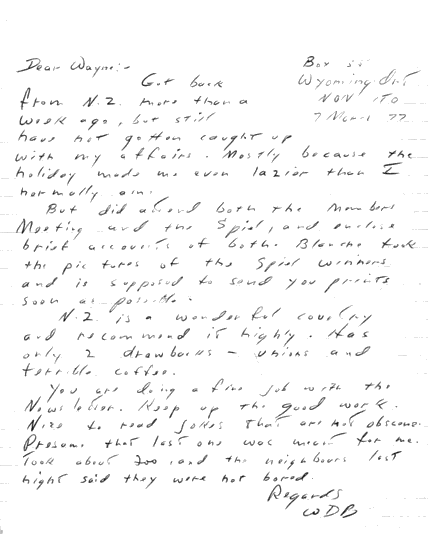 Dear Wayne:-
Box
Wyoming. Ont
N0N 1T0
7 77
Got back
from N.Z. more than a
week ago, but still
have not gotten caught up
with my affairs. Mostly because the
holiday made me even lazier than I
normally am.
But did attend both the Members
Meeting and the Spiel, and enclose
brief accounts of both. Blanche took
the pictures of the Spiel winners
and is supposed to send you prints
soon as possible.
N.Z. is a wonderful country
and recommend it highly. Has
only 2 drawbacks - unions and
terrible coffee.
You are doing a fine job with the
Newsletter. Keep up the good work.
Nice to read jokes that are not obscene.
Presume that last one was meant for me.
Took about and the neighbours last
night said they were not bored.
Regards
WDB